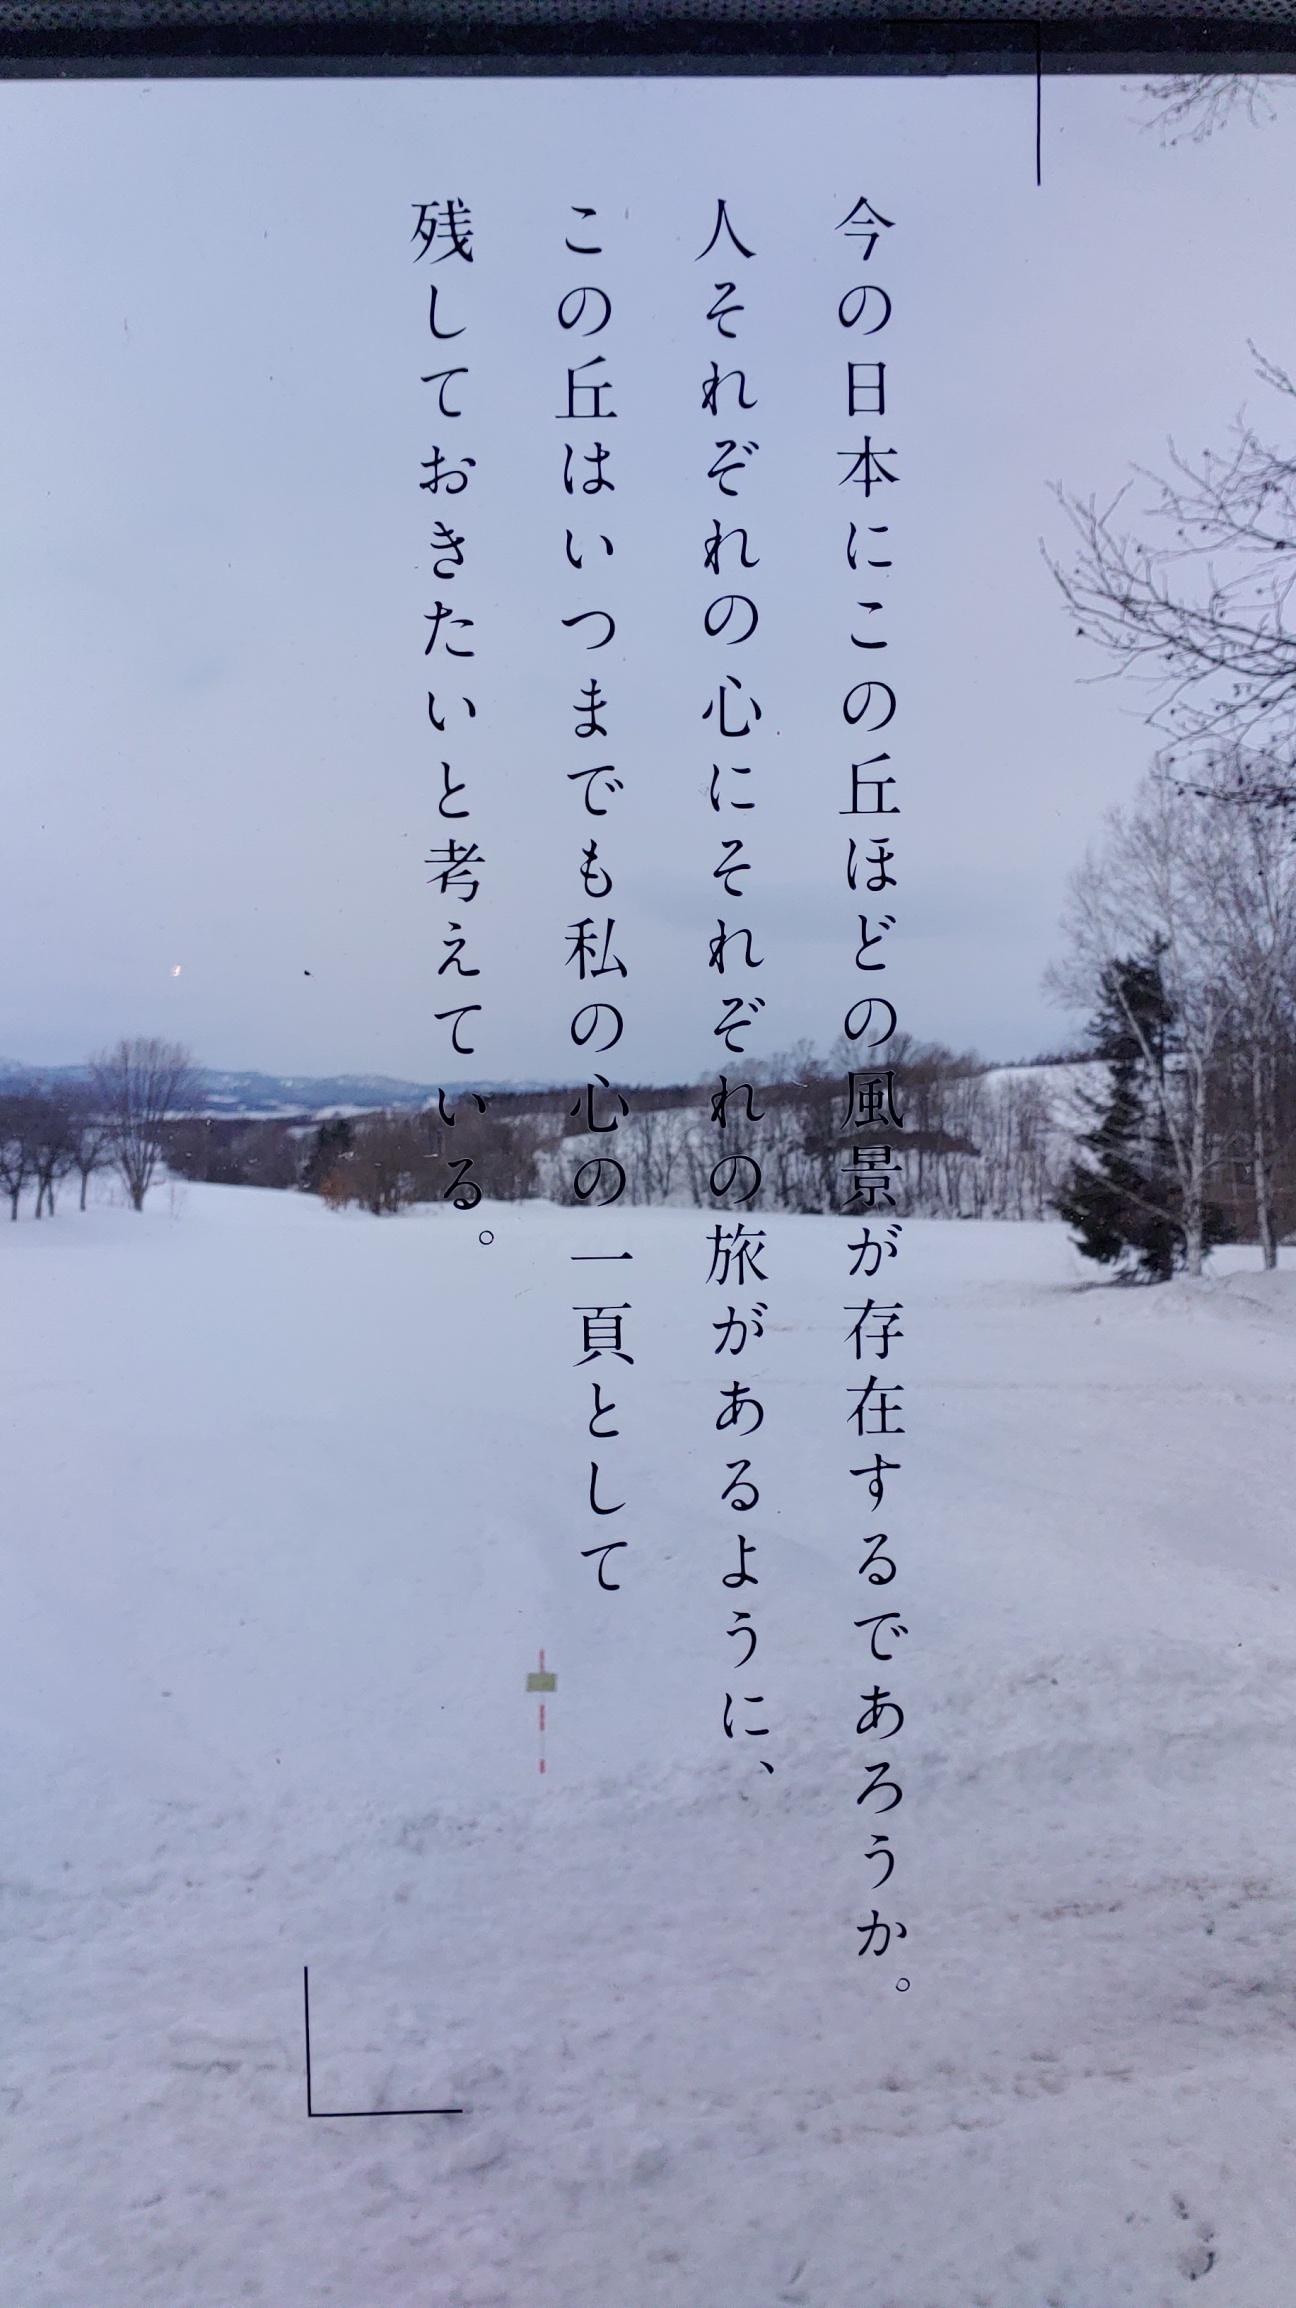 今の日本にこの丘ほどの風景が存在するであろうか。
人それぞれの心にそれぞれの旅があるように、
この丘はいつまでも私の心の一頁として
残しておきたいと考えている。